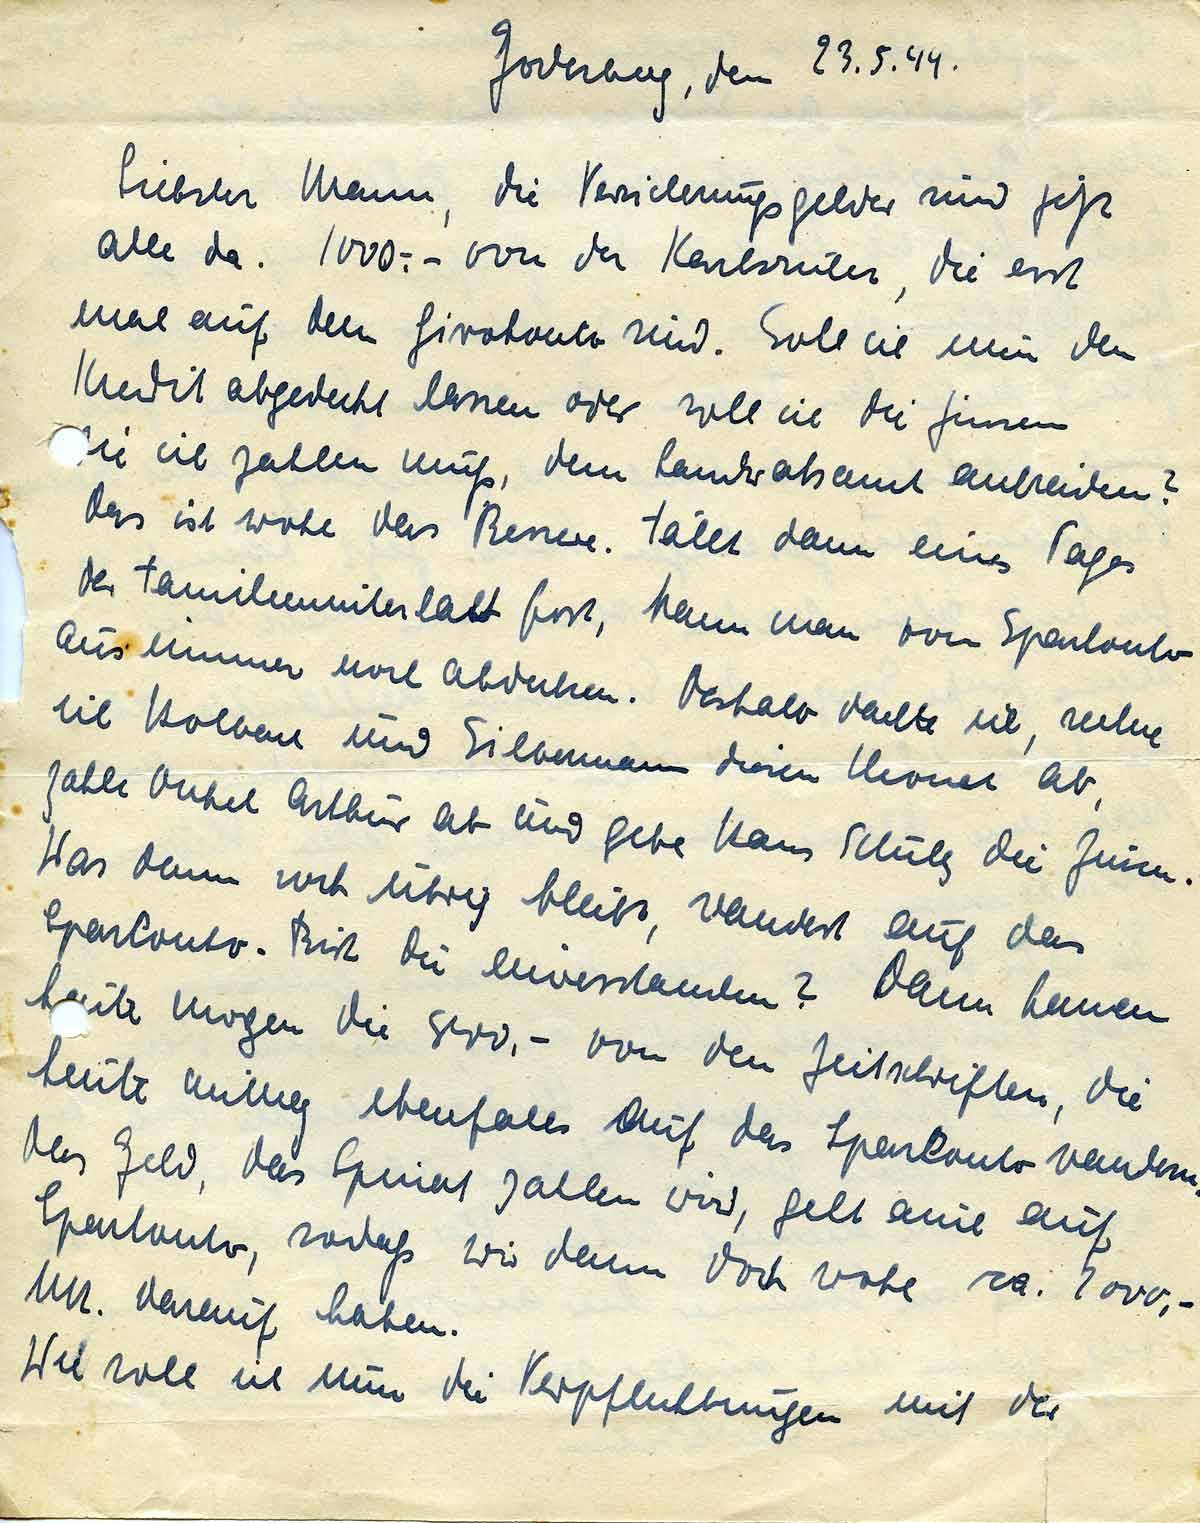 Godesberg, den 23.5.44.
Liebster Mann, die Versicherungsgelder sind jetzt
alle da. 1000.- von der Karlsruher, die erst
mal auf dem Girokonto sind. Soll ich nun den
Kredit abgedeckt lassen oder soll ich die Zinsen
die ich zahlen muß, dem Landratsamt ankreiden?
Das ist wohl das Bessere. Fällt dann eines Tages
der Familienunterhalt fort, kann man vom Sparkonto
aus immer noch abdecken. Deshalb dachte ich, rechne
ich und Silbermann diesen Monat ab,
zahle Onkel Arthur ab und gebe Hans Schulz die Zinsen.
Was dann noch übrig bleibt, wandert auf das
Sparkonto. Bist du einverstanden? Dann kamen
heute morgen die von den Zeitschriften, die
heute mittag ebenfalls auf das Sparkonto wandern.
Das Geld, das zahlen wird, geht auch auf
Sparkonto, sodaß wir dann doch wohl ca. 7000,-
Mk. darauf haben.
Wie soll ich nun die Verpflichtungen mit der